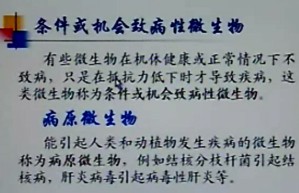 条件或机会致病性微生物
有些微生物在机体健康或正常情况下不
致病，只是在抵抗力低下时才导致疾病，这
类微生物称为条件或机会致病性微生物。
病原微生物
能引起人类和动植物发生疾病的微生物
称为病原微生物，例如结核分枝杆菌引起结
核病，肝炎病毒引起病毒性肝炎等。